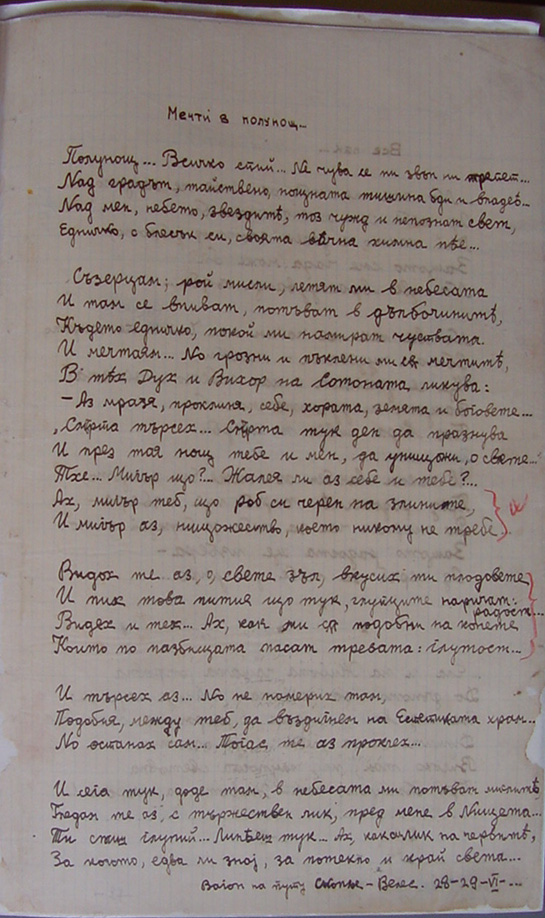 Мечти в полунощ...
Полунощ... Всичко спий... Не чува се ни звън ни трепет...
Над градът, тайствено, нощната тишина бди и владей...
Над мен, небето, звездитѣ, тоз чужд и непознат свет,
Еднично, с блесък си, своята вѣчна химна пѣе...
Съзерцам; рой мисли, летят ми в небесата
И там се впиват, потъват в дълбочинитѣ,
Където еднично, покой ми намират чуствата.
И мечтаям... Но грозни и пъклени ми са мечтитѣ,
В тѣх Дух и Вихор на Сотоната ликува:
– Аз мразя, проклиня, себе, хората, земята и боговете...
„Смърта търсех... Смърта тук ден да празнува
И през тая нощ тебе и мен, да унищожи, о свете..."
Тхе... Милър що?... Жалея ли аз себе и тебе?...
Ах, милър теб, що роб си черен на злините,
И милър аз, нищожество, което никому не требе...
Видох те аз, о, свете зъл, вкусих ти плодовете
И пих това питие що тук, глупците наричат: радост...
Видех и тех... Ах, как ми са подобни на конете
Които по пазбищата пасат тревата: глутост...
И търсех аз... Но не померих там,
Подобия, между теб, да въздигнем на Естетиката храм...
Но останах сам... Тогаз те аз проклех...
И сега тук, доде там, в небесата ми потъват мислитѣ,
Гледам те аз, с тържествен лик, пред мене в Нищета...
Ти спиш глупий... Липѣеш тук... Ах, какъв лик на червеитѣ,
За когото, едва ли зной, за потекно и край света...
Вагон на путу Скопье – Велес. 28-29-VI-...